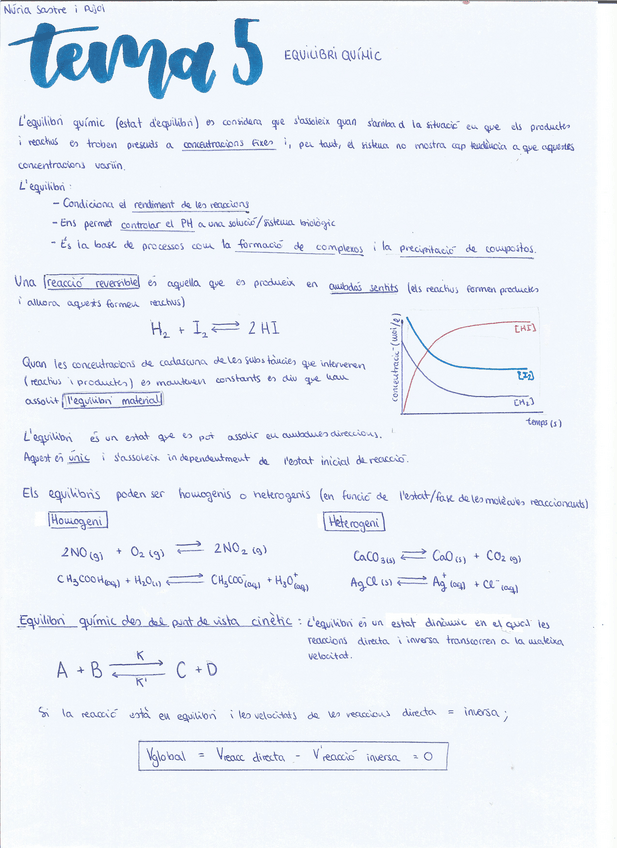 Núria Sastre i Pujol
tema 5
EQUILIBRI QUÍMIC
L'equilibri químic (estat d'equilibri) es considera que s'assoleix quan s'arriba a la situació en que els productes
i reactius es troben presents a concentracions fixes i, per tant, el sistema no mostra cap tendència a que aquestes
concentracions variïn.
L'equilibri:
- Condiciona el rendiment de les reaccions
- Ens permet controlar el PH a una solució/sistema biològic
- És la base de processos com la formació de complexos i la precipitació de compostos.
Una reacció reversible és aquella que es produeix en ambdós sentits (els reactius formen productes
i alhora aquests formen reactius)
H₂ + I₂ ⇌ 2 HI
concentració (mol/l)
[HI]
[I₂]
[H₂]
temps (s)
Quan les concentracions de cadascuna de les substàncies que intervenen
(reactius i productes) es mantenen constants es diu que han
assolit l'equilibri material
L'equilibri és un estat que es pot assolir en ambdues direccions.
Aquest és únic i s'assoleix independentment de l'estat inicial de reacció.
Els equilibris poden ser homogenis o heterogenis (en funció de l'estat/fase de les molècules reaccionants)
Homogeni
Heterogeni
2NO(g) + O₂(g) ⇌ 2NO₂(g)
CaCO₃(s) ⇌ CaO(s) + CO₂(g)
CH₃COOH(aq) + H₂O(l) ⇌ CH₃COO⁻(aq) + H₃O⁺(aq)
AgCl(s) ⇌ Ag⁺(aq) + Cl⁻(aq)
Equilibri químic des del punt de vista cinètic: L'equilibri és un estat dinàmic en el qual les
reaccions directa i inversa transcorren a la mateixa
velocitat.
A + B ⇌ C + D
K
K'
Si la reacció està en equilibri i les velocitats de les reaccions directa = inversa;
Vglobal = Vreacc directa - V'reacció inversa = 0